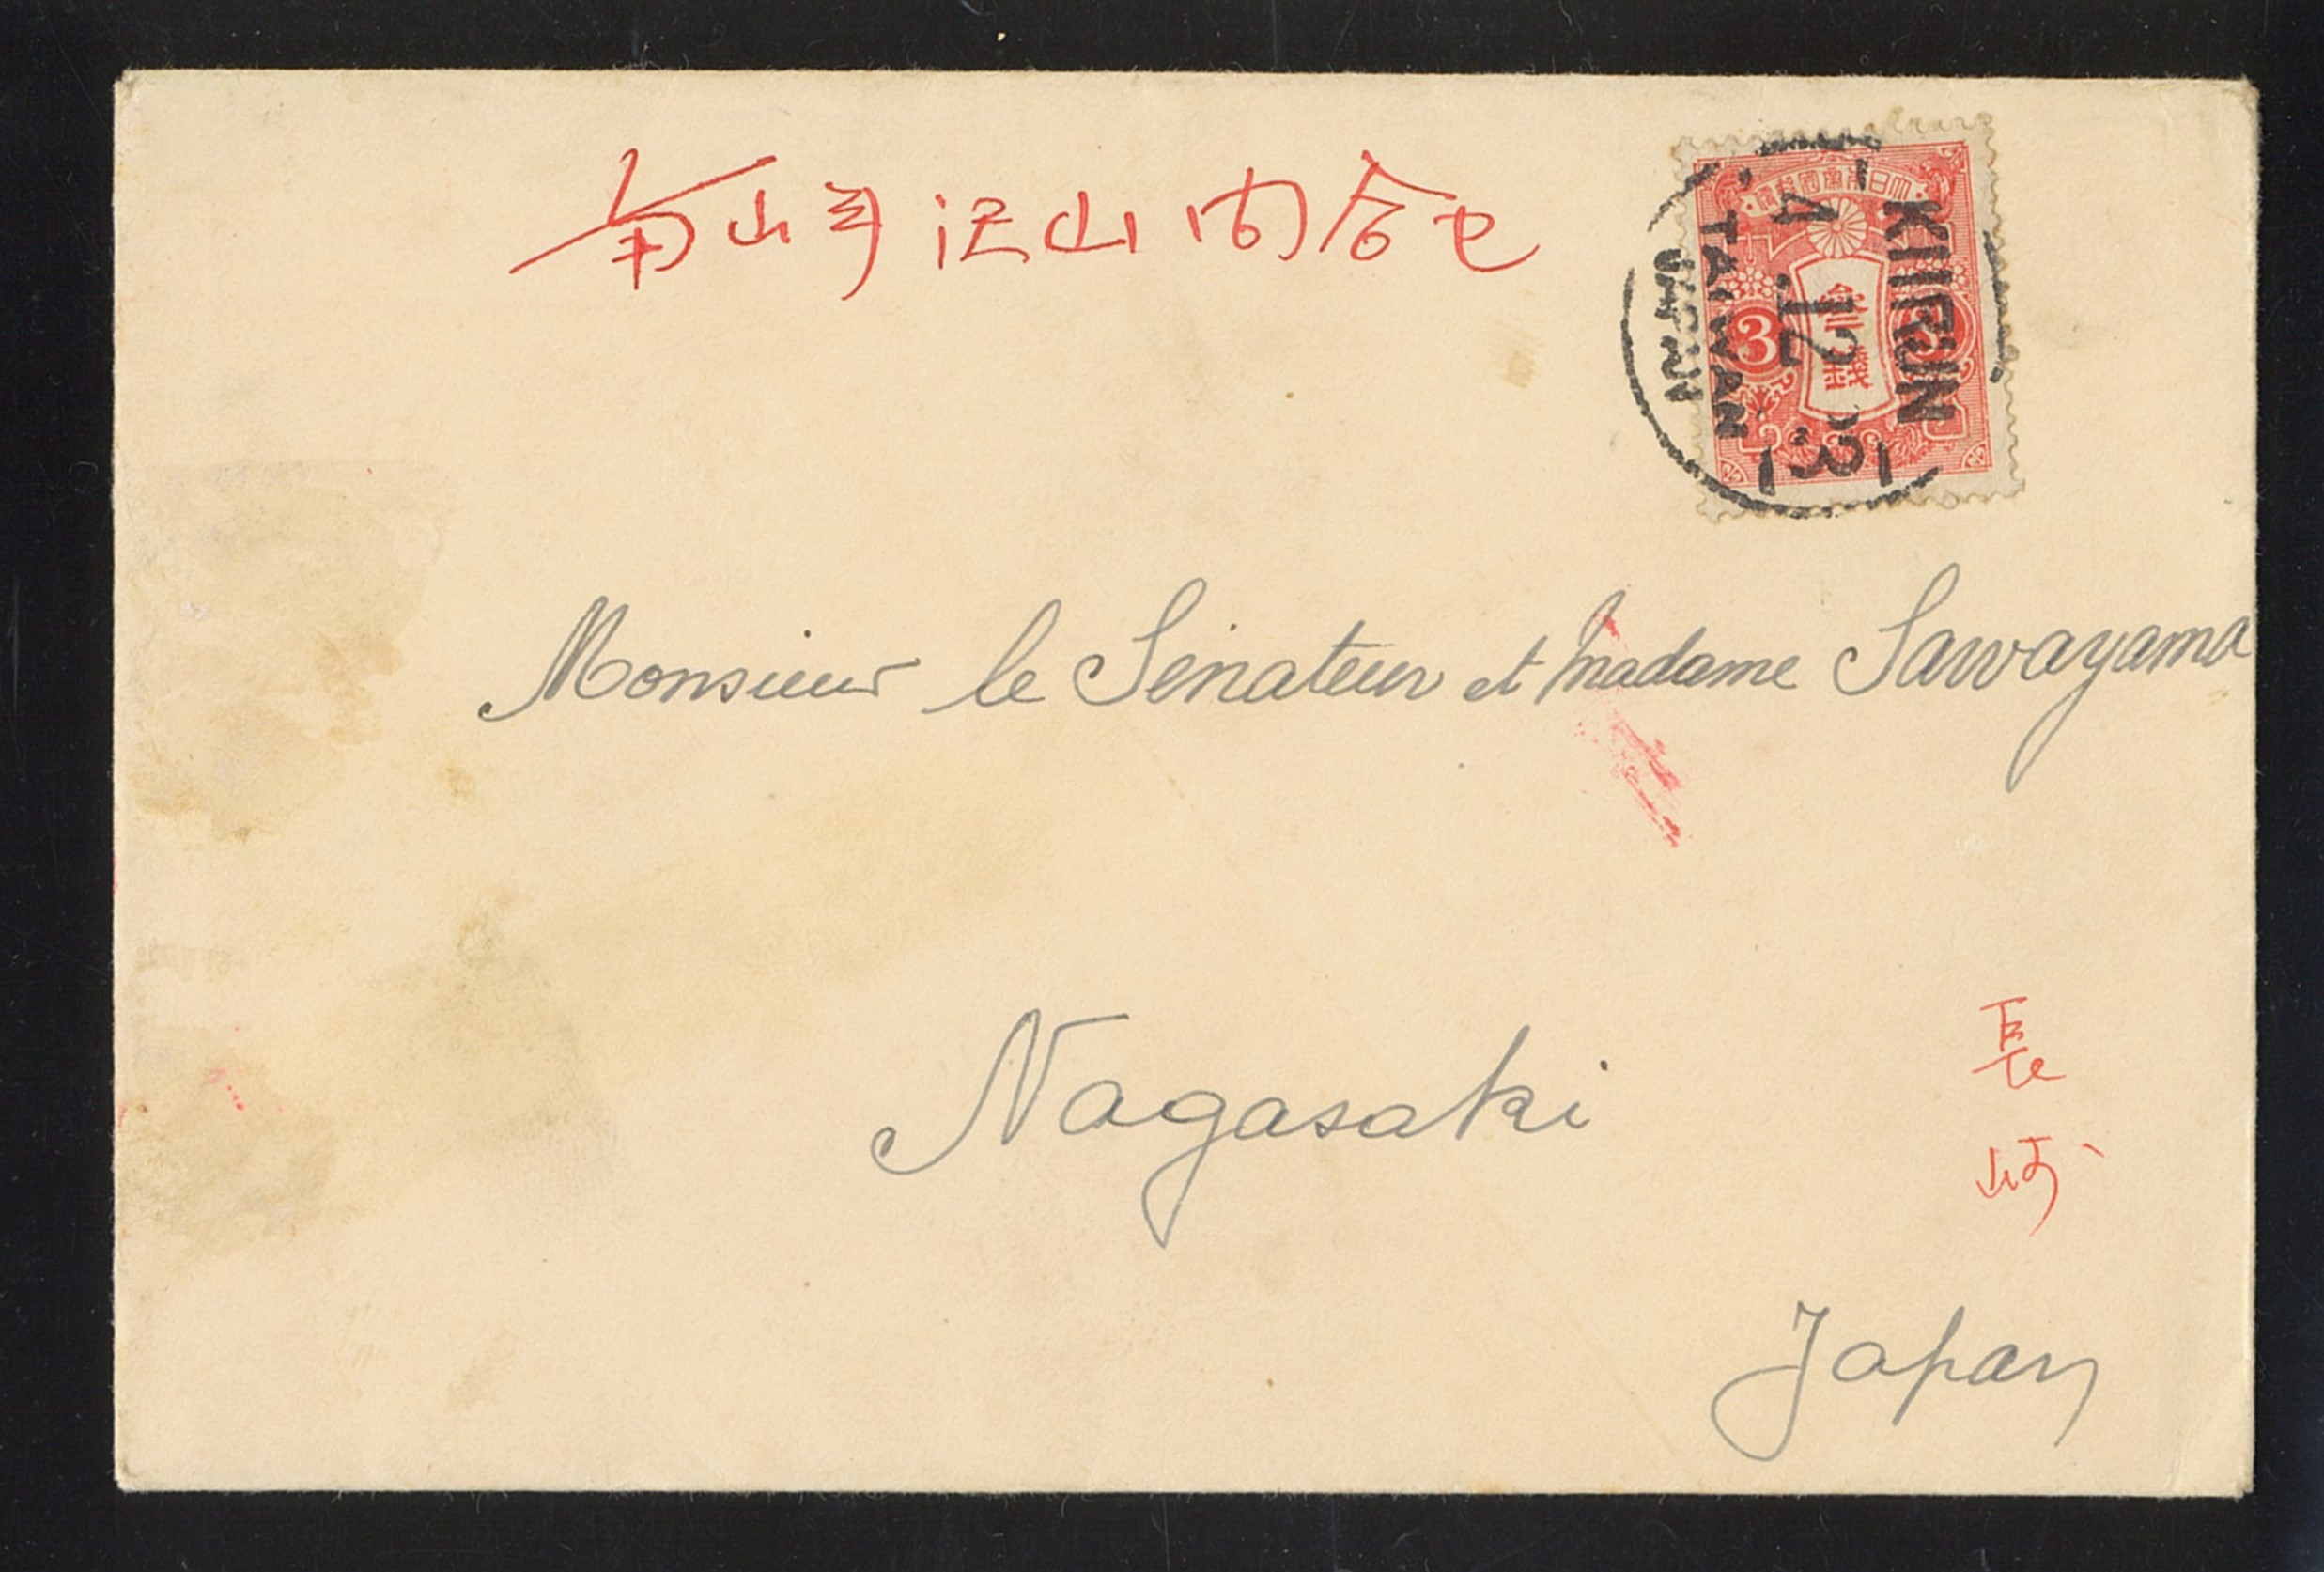 南山手沢山問合セ
大日本帝國郵便
參錢
3 3
KIIRUN
4.12.31
TAIWAN
JAPAN
Monsieur le Sénateur et Madame Sawayama
Nagasaki
長崎
Japan